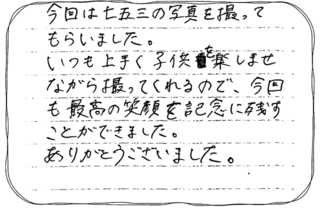 今回は七五三の写真を撮って
もらいました。
いつも上手く子供を楽しませ
ながら撮ってくれるので、今回
も最高の笑顔を記念に残す
ことができました。
ありがとうございました。